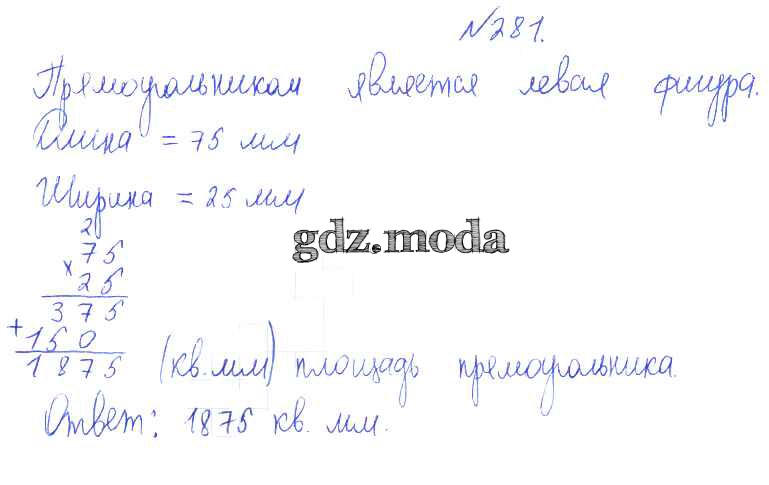 №281.
Прямоугольником является левая фигура.
Длина = 75 мм
Ширина = 25 мм
gdz.moda
2
75
× 25
375
+ 150
1875 (кв. мм) площадь прямоугольника.
Ответ: 1875 кв. мм.